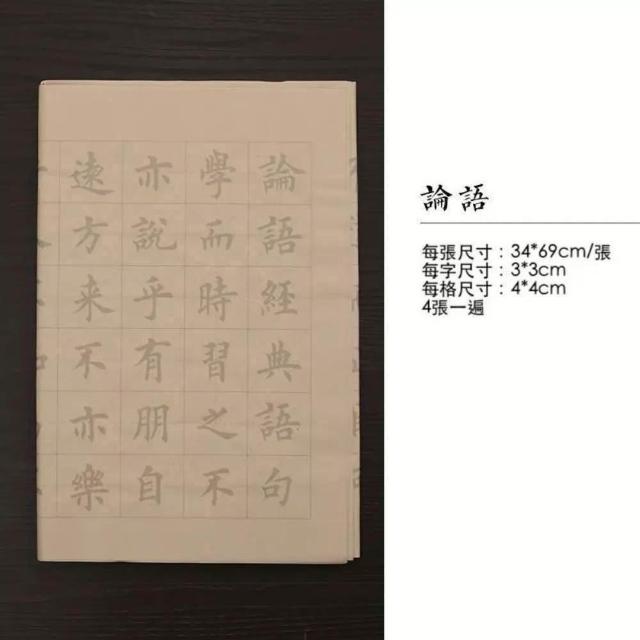 論語經典語句
學而時習之不
亦說乎有朋自
逺方来不亦樂
論語
每張尺寸：34*69cm/張
每字尺寸：3*3cm
每格尺寸：4*4cm
4張一遍